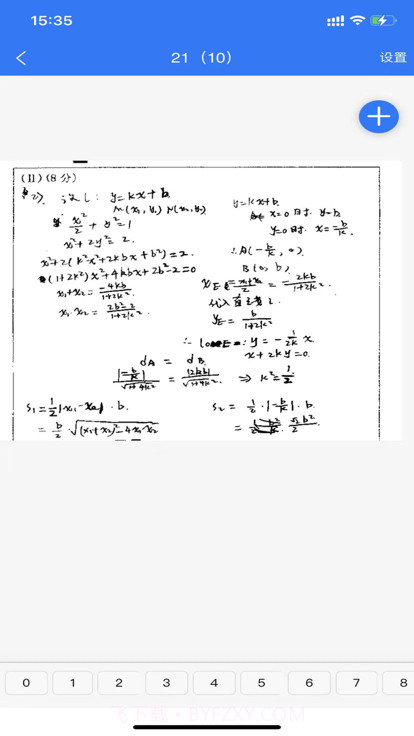 15:35
21（10）
设置
(II) (8分)
(2). 设 l: y=kx+b
M(x₁, y₁) N(x₂, y₂)
x²/2 + y²=1
x²+2y²=2.
x²+2(k²x²+2kbx+b²)=2.
(1+2k²)x²+4kbx+2b²-2=0
x₁+x₂=-4kb/1+2k²
x₁·x₂=2b²-2/1+2k²
y=kx+b.
x=0时. y=b.
y=0时. x=-b/k.
∴A(-b/k, 0)
B(0, b)
x_E=x₁+x₂/2=-2kb/1+2k².
代入直线 l.
y_E=b/1+2k²
∴ l_OE: y=-1/2k x
x+2ky=0.
d_A = d_B
|-b/k|/√1+4k² = |2kb|/√1+4k² ⇒ k²=1/2
S₁=1/2|x₁-x₂|·b.
=b/2·√(x₁+x₂)²-4x₁x₂
S₂=1/2·|-b/k|·b
=√2b²/2
0 1 2 3 4 5 6 7 8